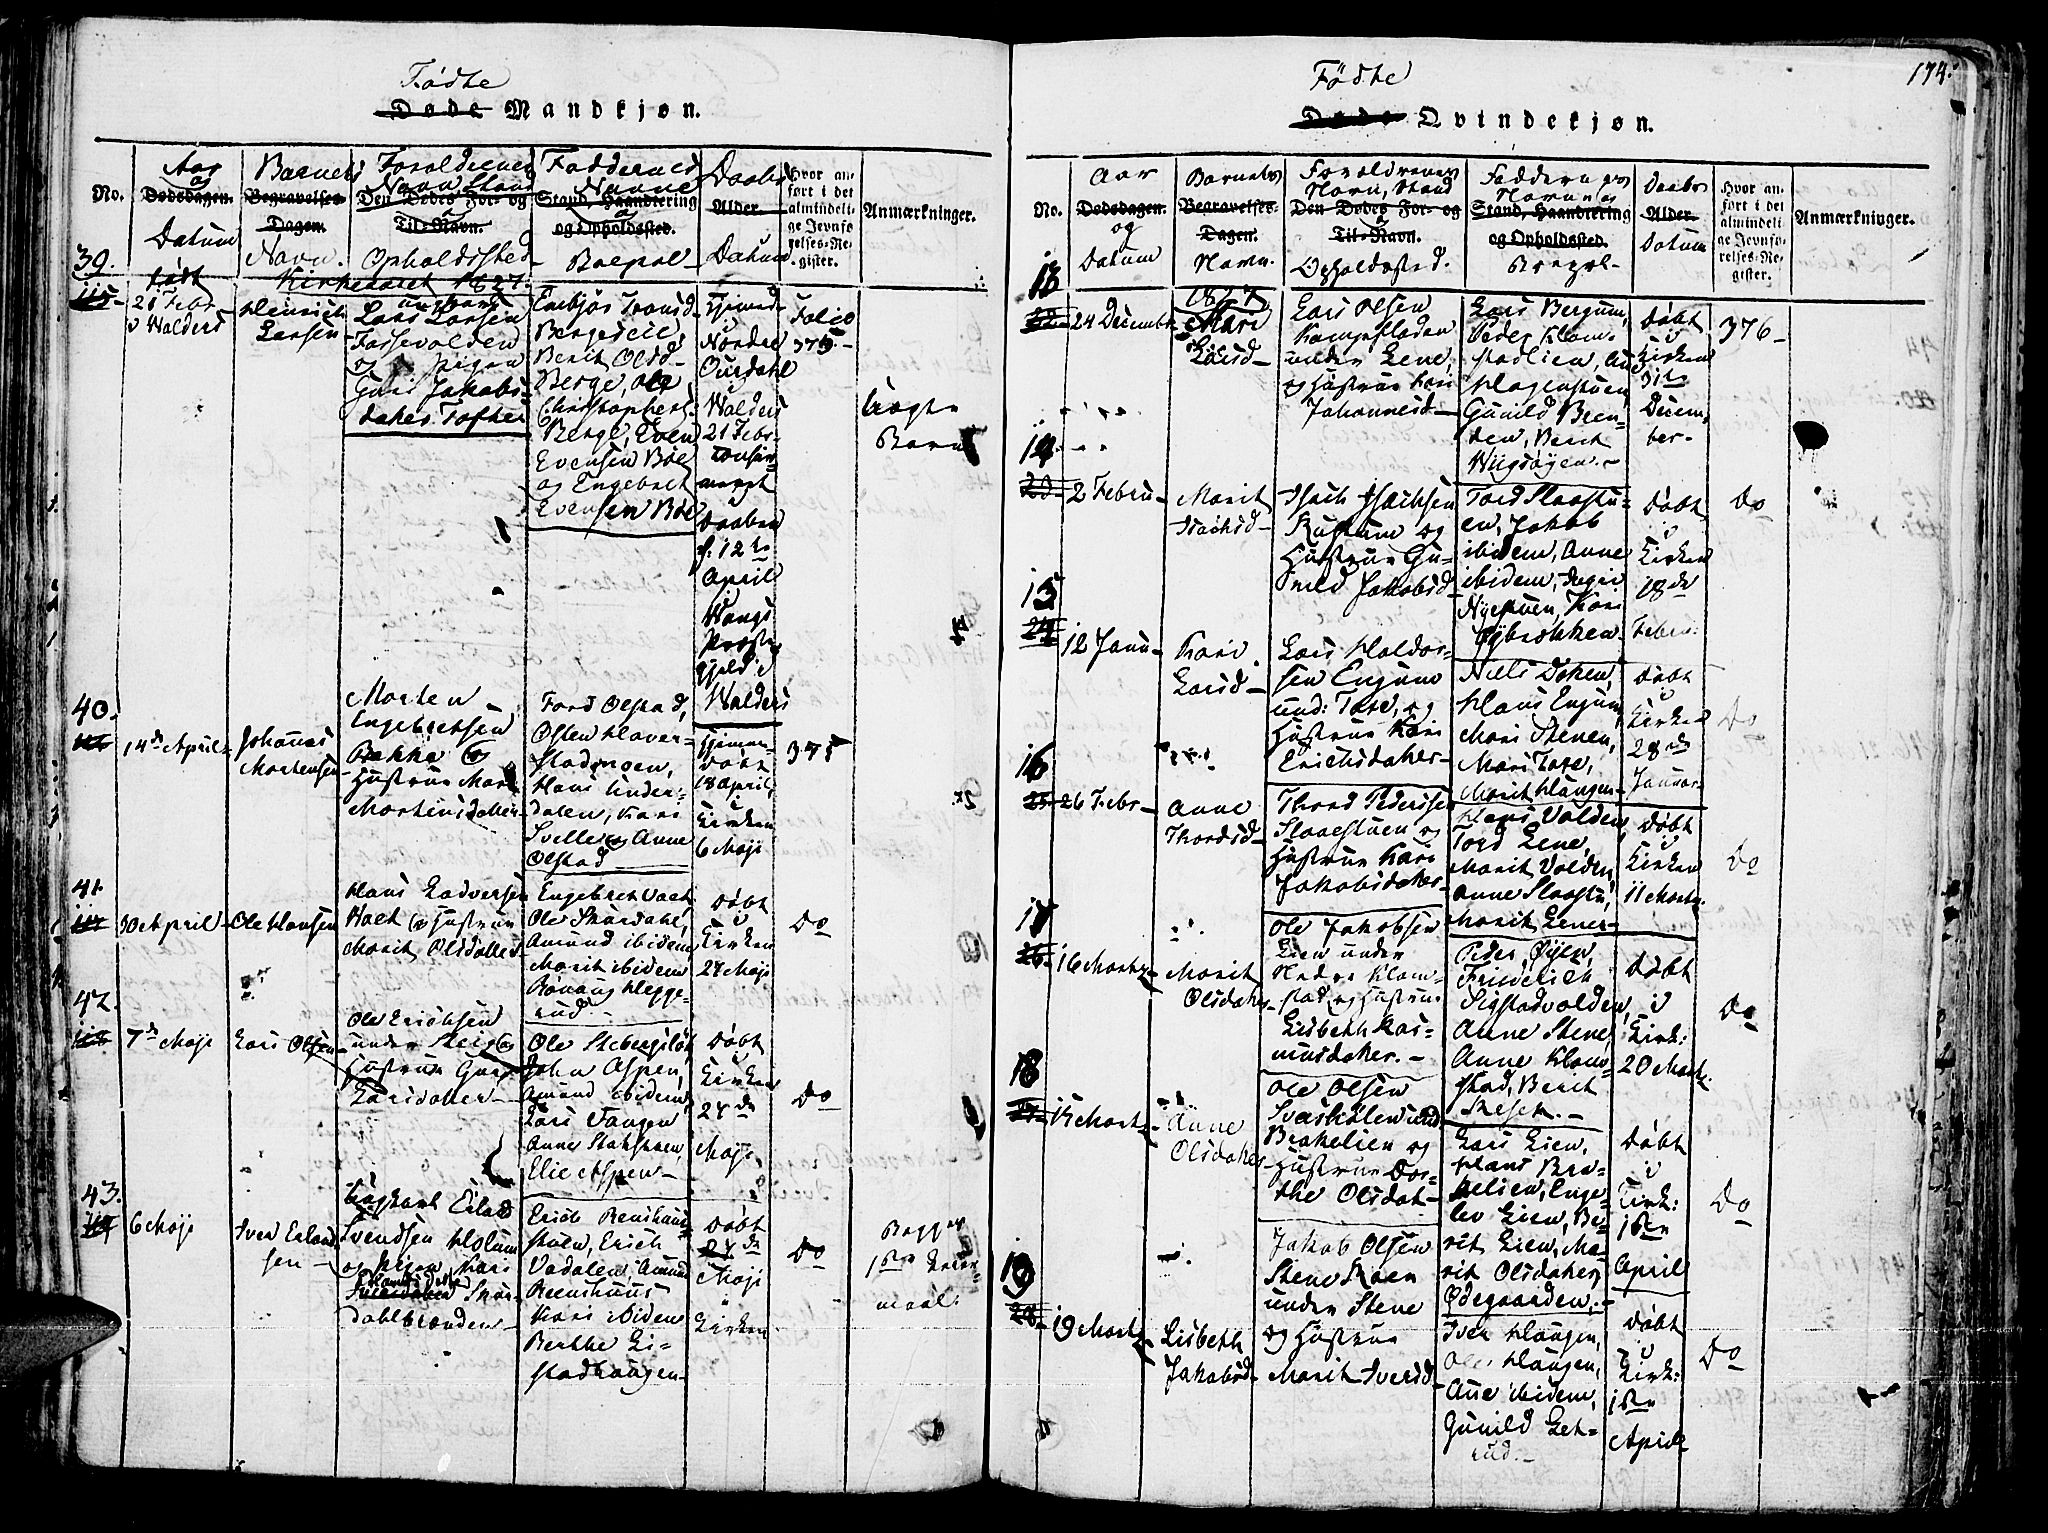 Fødte
Døde Mandkjøn.
No.
Aar og Dødsdagen. Datum
Barnets Begravelses-Dagen. Navn.
Forældrenes Navn Stand Den Dødes For- og Til-Navn. Opholdssted
Faddernes Navne Stand, Haandtering og Opholdssted. Boepæl
Daabs Alder. Datum
Hvor anført i det almindelige Jevnførelses-Register.
Anmærkninger.
Kirkeaaret 1827.
39.
født
21 Febr.
i Walders
Henrich
Larsen
Ungkarl
Lars Larsen
Fossevolden
og Pigen
Guri Jakobs-
daker Tofte
Embjør Iversd.
Bergseie,
Berit Olsd
Berge, Ole
Christophers.
Berge, Even
Evensen Bøe
og Engebret
Evensen Bøe
Hjemmed.
i
Nordre
Ourdahl
Walders
21 Febr.
confir-
meret
Daaben
d. 12te
April
Wangs
Præste
gjeld i
Walders
Folio
375
Uægte
Barn
40.
14de April
Johanes
Mortensen
Morten
Engebretsen
Bakke og
Hustrue Mari
Mortensdatter
Tord Olstad,
Østen Haver-
stadengen,
Hans Under-
dalen, Kari
Svelle og Anne
Olstad
Hjemme-
døbt
18 April,
i
Kirken
6 Maji
375
41.
30 April
Ole Hansen
Hans Ladversen
Wolt og Hustrue
Marit Olsdatter
Engebret Volt
Ole Skurdahl,
Amund ibidem,
Marit ibidem
Rønnaug Hegge-
rud
Døbt
i
Kirken
24 Maji
Do
42.
7de Maji
Lars Olsen
Ole Erichsen
under Steig og
Hustrue Guri
Larsdater
Ole Stebergsløk
John Aspen,
Amund ibidem,
Lars Vangen
Anne Stakstuen,
Elie Aspen
Døbt
i
Kirken
24de
Maji
Do
43.
6 Maji
Iver Erland
sen
Ungkarl Erland
Svendsen Holum
og pigen Kari
Skur-
dahlbrænden
Erich Benshuus
stuen, Erich
Vadalen, Amund
Benshuus
Kari ibidem
Berthe Li-
stadhaugen
Døbt
24de
Maji
i
Kirken
Do
Begges
1ste Leier-
maal.
174.
Fødte
Døde Qvindekjøn.
No.
Aar Dødsdagen. og Datum
Barnets Begravelses-Dagen. Navn.
Forældrenes Navn, Stand Den Dødes For- og Til-Navn. Opholdssted.
Faddernes Navn og Stand, Haandtering og Opholdssted. Boepæl
Daabs Alder. Datum
Hvor anført i det almindelige Jevnførelses-Register.
Anmærkninger.
13
22
24 Decembr.
1827
Mari
Larsd
Lars Olsen
Kampesladen
under Lene,
og Hustrue Kari
Johannesd
Lars Bergum,
Peder Klom-
stadlien, Anne
Hagenstuen
Gunild Bræn-
den, Berit
Wiigsøyen.
Døbt
i
Kirken
31te
Decem-
ber.
376
14
23.
2 Febru
Marit
Isachsd
Isach Isachsen
Rustum og
Hustrue Gu-
nild Jakobsd
Tord Slaastu-
en, Jakob
ibidem, Anne
ibidem, Ingri
Nystuen, Kari
Sybrøkken
Døbt
i
Kirken
18de
Febru:
Do
15
24
12 Janu
Kari
Larsd
Lars Haldor-
sen Engum
und: Tofte, og
Hustrue Kari
Erichsdater
Niels Doken,
Hans Engum
Mari Stenen,
Mari Tofte,
Marit Haugen
Døbt
i
Kirken
28de
Januar
Do
16
25
26 Febr
Anne
Thordsd
Thord Pedersen
Slaaestuen og
Hustrue Kari
Jakobsdater
Hans Volden,
Tord Lene,
Marit Volden,
Anne Slaastu,
Marit Lener
Døbt
i
Kirken
11 Marty.
Do
17
26
16 Marty
Marit
Olsdater
Ole Jakobsen
Lien under
Nedre Klom-
stad og Hustrue
Lisbeth Ras-
musdater.
Peder Øyen,
Friderich
Sigstadvolden,
Anne Stene,
Anne Klom-
stad, Berit
Skesek.
Døbt
i
Kirk:
20 Marty.
Do
18
27
15 Marty
Anne
Olsdater
Ole Olsen
Svarthølen und
Brakelien og
Hustrue Dor-
the Olsdat
Lars Lien,
Hans Bra-
kelien, Enge-
lev Lien, Be-
rit Lien, Ma-
rit Olsdater
Ødegaarden,
Døbt
i
Kirk:
1ste
April
Do
19
28
19 Marty
Lisbeth
Jakobsd
Jakob Olsen
Stene Roen
under Stene
og Hustrue
Marit Iversd
Iver Haugen,
Ole Haugen,
Anne ibidem,
Gunild Lek-
rud.
Døbt
i
Kirk:
1ste
April
Do